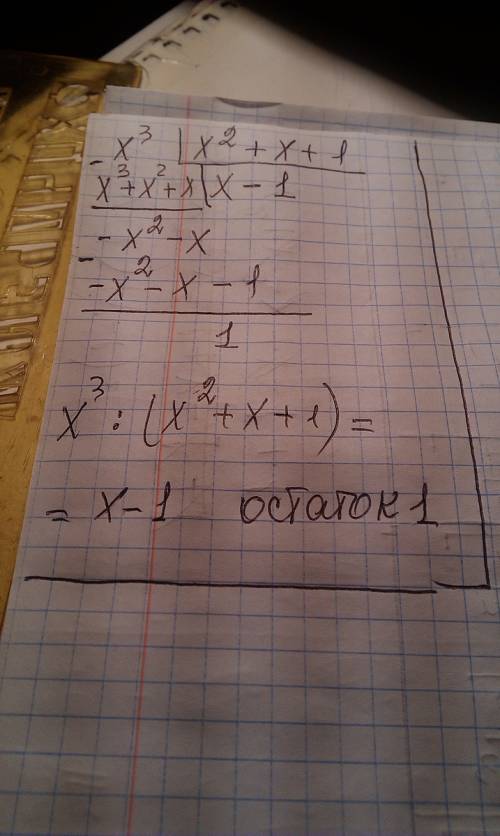 - x³ | x² + x + 1
x³ + x² + x | x - 1
- x² - x
- - x² - x - 1
1
x³ : (x² + x + 1) =
= x - 1 остаток 1